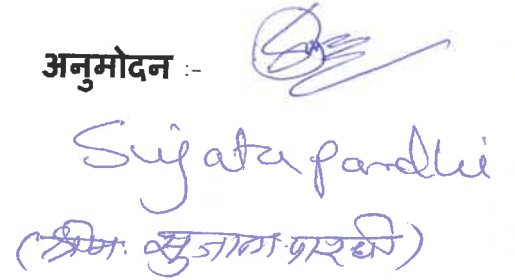 अनुमोदन :-
Sujata Pardhi
(श्रीम. सुजाता पारधी)